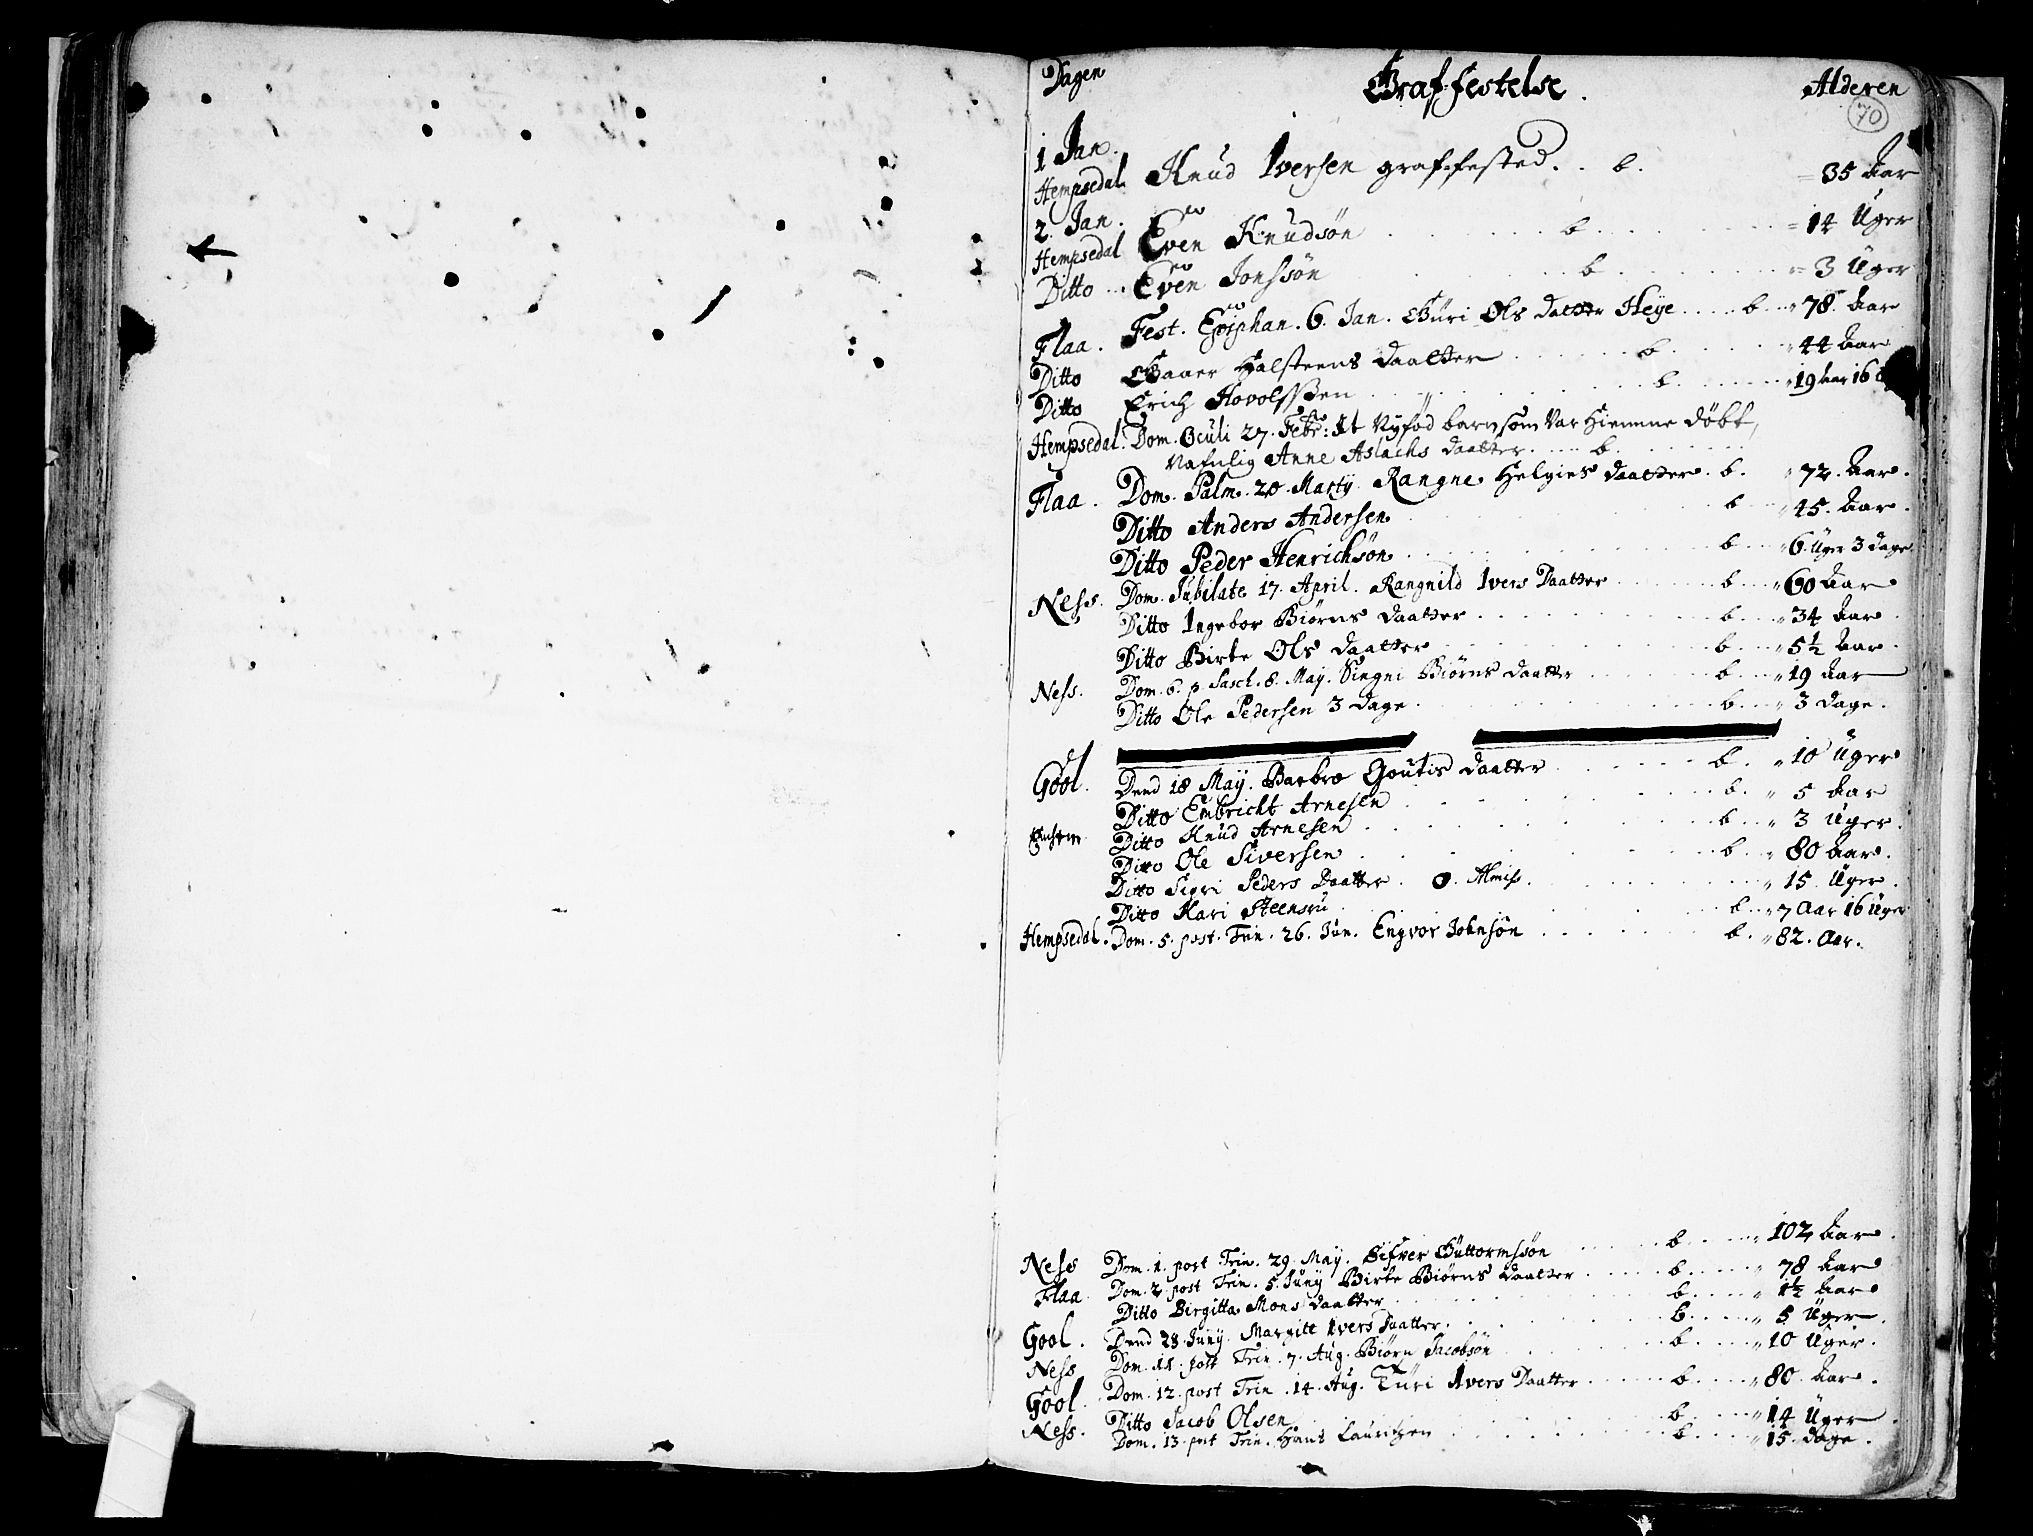 Dagen Graf-festelse. Alderen
70
1 Jan.
Hempsedal. Knud Iversen graf-fested. . b. = 35 Aar
2. Jan.
Hempsedal Even Knudsön b = 14 Uger
Ditto Even Jonssön b = 3 Uger
Flaa. Fest. Epiphan. 6. Jan. Güri Ols datter Heÿe b 78 Aar
Ditto Baaer Halsteens daatter b 44 Aar
Ditto Erich Hovolssen b 19 Aar 16
Hempsedal. Dom. Oculi 27. Febr: It Nyfød barn som var Hiemme döbt,
Nafnlig Anne Aslachs daatter b
Flaa. Dom. Palm. 20. Martÿ. Rangne Helgies daatter. b. 72. Aar.
Ditto Anders Andersen b 45. Aar.
Ditto Peder Henrichsön b 6 Uger 3 dage
Ness. Dom. Jubilate 17. April. Rangnild Ivers Daatter b 60 Aar
Ditto Ingebor Biörns daatter b 34 Aar
Ditto Birte Ols daatter b 5½ Aar
Ness. Dom. 6. p Pasch. 8. Maÿ. Singni Biørns daatter b 19 Aar
Ditto Ole Pedersen 3 dage b 3 dage.
Gool. Dend 18 Maÿ. Barbro Goutis daatter b. 10 Uger
Ditto Embricht Arnesen b. 5 Aar
Ditto Knud Arnesen b 3 Uger.
Ditto Ole Siversen b 80 Aar.
Ditto Sigri Peders Daatter. o. Almiss. 15. Uger.
Ditto Kari Steensrü b 7 Aar 16 Uger
Hempsedal. Dom. 5. post. Trin. 26. Jün. Engvor Johnsön b. 82. Aar.
Ness Dom. 1. post Trin. 29. Maÿ. Sifver Güttormssön b 102 Aar.
Flaa Dom. 2 post Trin. 5. Junÿ Birte Biörns daatter b 78 Aar
Ditto Birgitta Mons daatter b 1½ Aar
Gool. Dend 23. Junÿ. Margitt Ivers Daatter. b. 5 Uger.
Ness Dom. 11. post Trin. 7. Aug. Biörn Jacobsön b 10 Uger.
Gool. Dom. 12. post Trin. 14. Aug. Türi Ivers Daatter b. 80 Aar.
Ditto Jacob Olsen b 14 Uger.
Ness. Dom. 13. post Trin. Hans Lauritzen b 15. dage.